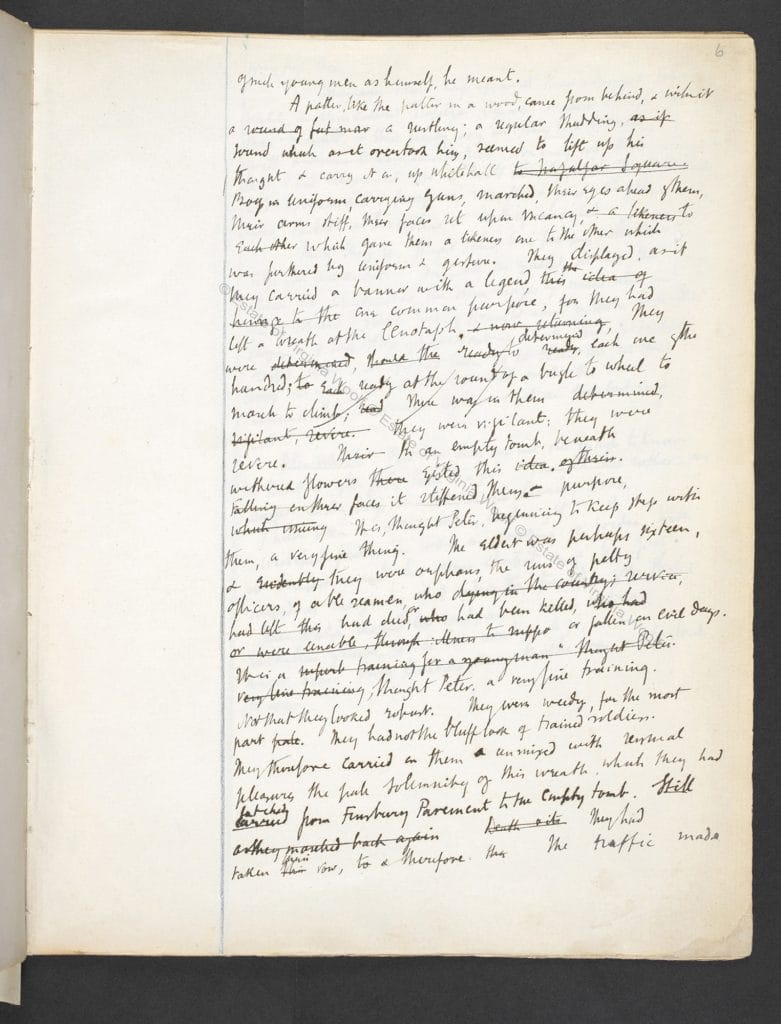 6
of such young men as himself, he meant.
A patter, like the patter in a wood, came from behind, & with it
a sound of feet a rustling; a regular thudding, as if
sound which as it overtook him, seemed to lift up his
thought & carry it on, up Whitehall to Trafalgar Square.
Boys in uniform, carrying guns, marched, their eyes ahead of them,
their arms stiff, their faces set upon vacancy, & a likeness to
each other which gave them a likeness one to the other which
was furthered by uniform & gesture. They displayed, as if
they carried a banner with a legend this the idea of
having to the one common purpose, for they had
left a wreath at the Cenotaph, & now returning, They
were determined, should the ready to determined ready, each one of the
hundred; to each ready at the sound of a bugle to wheel to
march to climb; There was in them determined,
vigilant, severe. They were vigilant; they were
severe. Their In an empty tomb, beneath
withered flowers there this idea of theirs.
falling on their faces it stiffened them purpose,
which It is, thought Peter, beginning to keep step with
them, a very fine thing. The eldest was perhaps sixteen,
& evidently they were orphans, the sons of petty
officers, of able seamen, who dying in the country's service,
had left this had died, or who had been killed, who had
or were unable, through illness to suppo or fallen on evil days.
It is a superb training for a young man" thought Peter.
very fine training, thought Peter. a very fine training.
Not that they looked robust. They were weedy, for the most
part pale. They had not the bluff look of trained soldiers.
They therefore carried on them unmixed with sensual
pleasures the pale solemnity of this wreath which they had
fetched
carried from Finsbury Pavement to the empty tomb. Still
as they marched back again They had
taken their vow, to & therefore. The traffic made
© Estate of Virginia Woolf © Estate of Virginia Woolf © Estate of Virginia Woolf